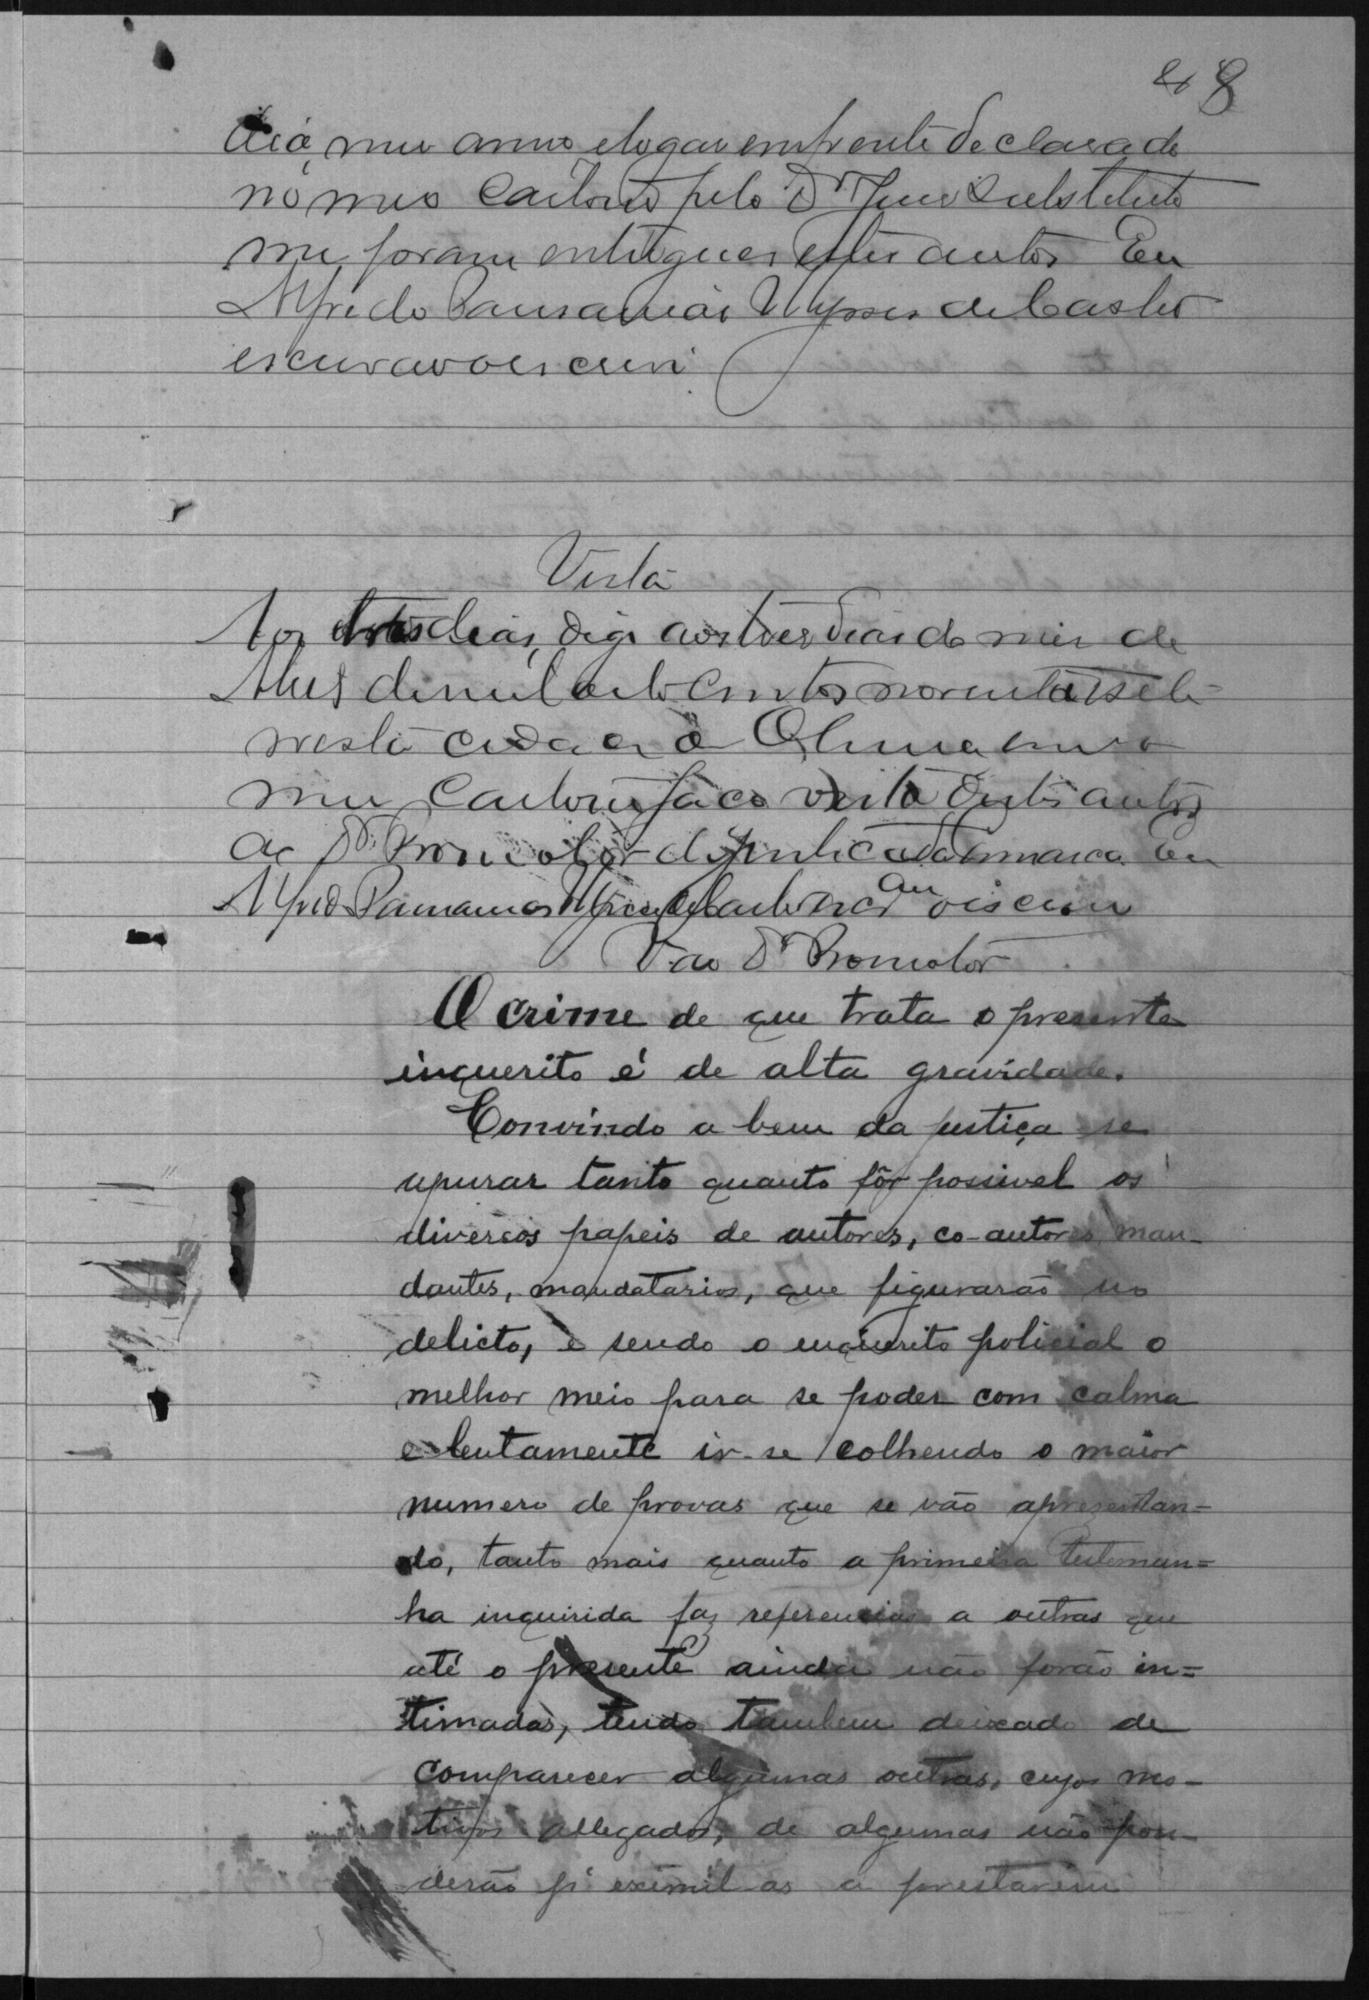 8
dia, mez anno e logar em frente declarado
no meu Cartorio pelo Dr Juiz Substituto
me foram entregues estes autos Eu
Alfredo Pausanias Ulysses de Castro
escrivao o escrevi
Vista
Aos tres dias, digo aos tres dias do mez de
de mil oito centos noventa e sete
nesta cidade de Olinda em o
meu Cartorio faço vista destes autos
ao Dr Promotor da Comarca Eu
Alfredo Pausanias Ulysses de Castro escrivao o escrevi
V ao Dr Promotor
O crime de que trata o presente
inquerito é de alta gravidade.
Convindo a bem da justiça se
apurar tanto quanto fôr possivel os
diversos papeis de autores, co-autores, man-
dantes, mandatarios, que figurarão no
delicto, e sendo o inquerito policial o
melhor meio para se poder com calma
e lentamente ir-se colhendo o maior
numero de provas que se vão aprezentan=
do, tanto mais quanto a primeira testemun=
ha inquirida faz referencias a outras que
até o presente ainda não forão in=
timadas, tendo tambem deixado de
comparecer algumas outras, cujos mo-
tivos allegados, de algumas não pon-
derão pª eximil-as a prestarem